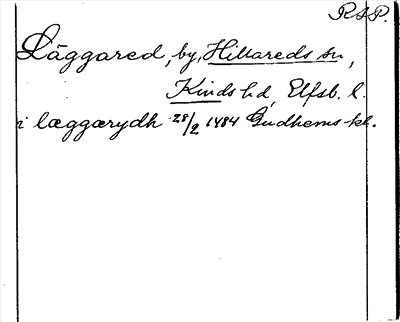 RSP.
Läggared, by, Hillareds sn,
Kinds hd, Elfsb. l.
i læggærydh 28/2 1484 Gudhems kl.